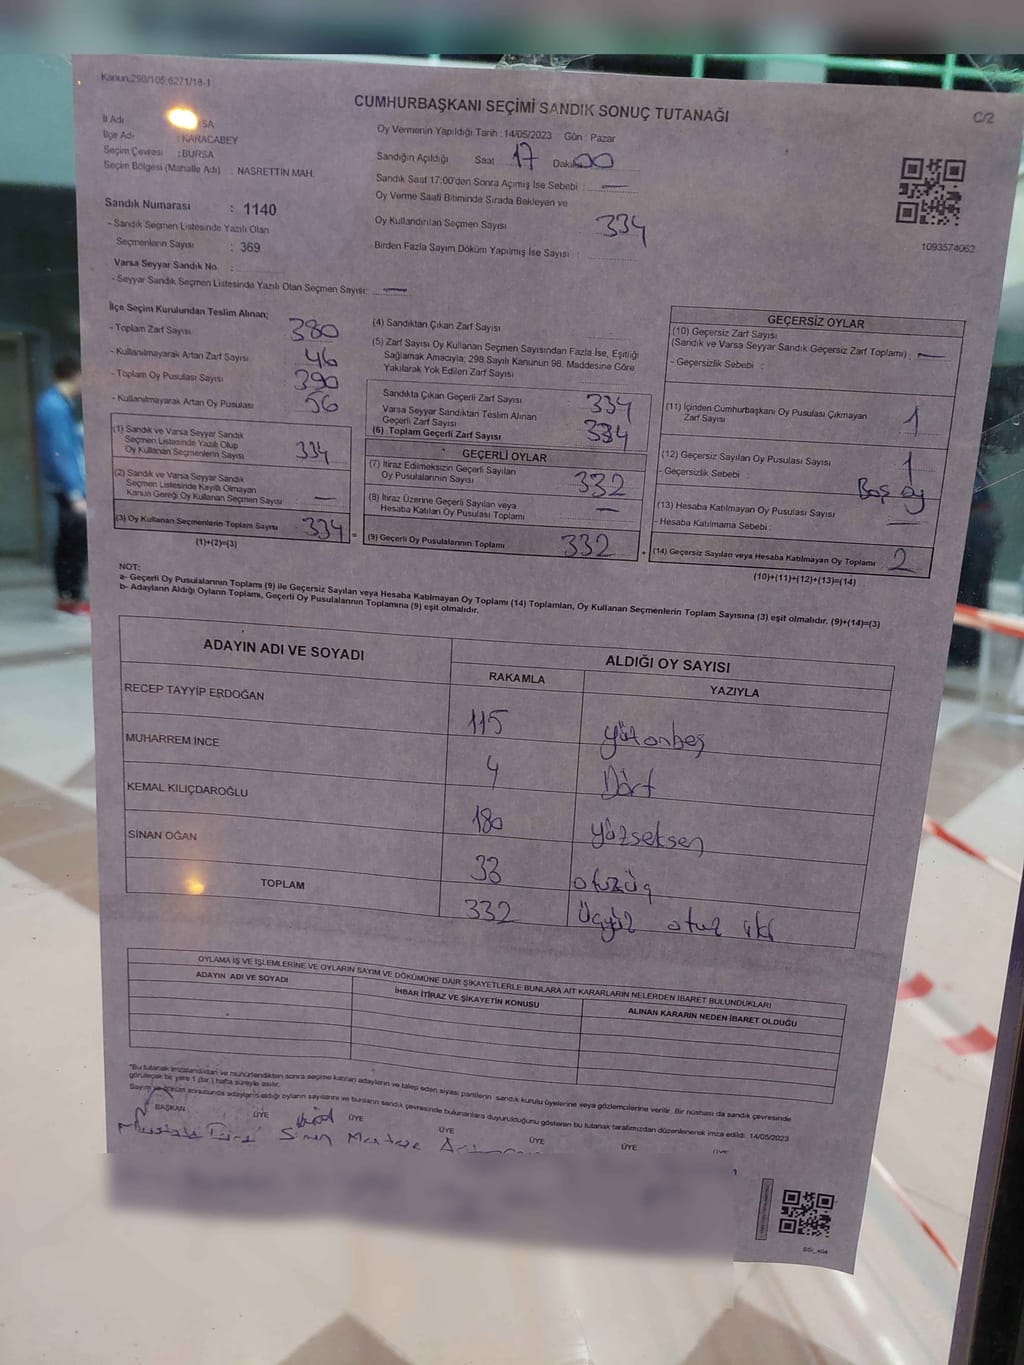 Kanun,298/105;6271/18-1
CUMHURBAŞKANI SEÇİMİ SANDIK SONUÇ TUTANAĞI
C/2
İl Adı
SA
İlçe Adı : KARACABEY
Seçim Çevresi : BURSA
Seçim Bölgesi (Mahalle Adı) : NASRETTİN MAH.
Sandık Numarası : 1140
- Sandık Seçmen Listesinde Yazılı Olan
Seçmenlerin Sayısı : 369
Varsa Seyyar Sandık No :
- Seyyar Sandık Seçmen Listesinde Yazılı Olan Seçmen Sayısı: —
Oy Vermenin Yapıldığı Tarih : 14/05/2023 Gün : Pazar
Sandığın Açıldığı Saat 17 Dakika 00
Sandık Saat 17:00'den Sonra Açımış İse Sebebi : —
Oy Verme Saati Bitiminde Sırada Bekleyen ve
Oy Kullandırılan Seçmen Sayısı 334
Birden Fazla Sayım Döküm Yapılmış İse Sayısı :
1093574062
İlçe Seçim Kurulundan Teslim Alınan;
- Toplam Zarf Sayısı 380
- Kullanılmayarak Artan Zarf Sayısı 46
- Toplam Oy Pusulası Sayısı 390
- Kullanılmayarak Artan Oy Pusulası 56
(1) Sandık ve Varsa Seyyar Sandık
Seçmen Listesinde Yazılı Olup
Oy Kullanan Seçmenlerin Sayısı 334
(2) Sandık ve Varsa Seyyar Sandık
Seçmen Listesinde Kayıtlı Olmayan
Kanun Gereği Oy Kullanan Seçmen Sayısı : —
(3) Oy Kullanan Seçmenlerin Toplam Sayısı 334 =
(1)+(2)=(3)
(4) Sandıktan Çıkan Zarf Sayısı
(5) Zarf Sayısı Oy Kullanan Seçmen Sayısından Fazla İse, Eşitliği
Sağlamak Amacıyla; 298 Sayılı Kanunun 98. Maddesine Göre
Yakılarak Yok Edilen Zarf Sayısı
Sandıkta Çıkan Geçerli Zarf Sayısı 334
Varsa Seyyar Sandıktan Teslim Alınan
Geçerli Zarf Sayısı
(6) Toplam Geçerli Zarf Sayısı 334
GEÇERLİ OYLAR
(7) İtiraz Edilmeksizin Geçerli Sayılan
Oy Pusulalarının Sayısı 332
(8) İtiraz Üzerine Geçerli Sayılan veya
Hesaba Katılan Oy Pusulası Toplamı —
(9) Geçerli Oy Pusulalarının Toplamı 332 +
GEÇERSİZ OYLAR
(10) Geçersiz Zarf Sayısı
(Sandık ve Varsa Seyyar Sandık Geçersiz Zarf Toplamı) : —
- Geçersizlik Sebebi :
(11) İçinden Cumhurbaşkanı Oy Pusulası Çıkmayan
Zarf Sayısı 1
(12) Geçersiz Sayılan Oy Pusulası Sayısı 1
- Geçersizlik Sebebi : Boş oy
(13) Hesaba Katılmayan Oy Pusulası Sayısı —
- Hesaba Katılmama Sebebi :
(14) Geçersiz Sayılan veya Hesaba Katılmayan Oy Toplamı 2
(10)+(11)+(12)+(13)=(14)
NOT:
a- Geçerli Oy Pusulalarının Toplamı (9) ile Geçersiz Sayılan veya Hesaba Katılmayan Oy Toplamı (14) Toplamları, Oy Kullanan Seçmenlerin Toplam Sayısına (3) eşit olmalıdır. (9)+(14)=(3)
b- Adayların Aldığı Oyların Toplamı, Geçerli Oy Pusulalarının Toplamına (9) eşit olmalıdır.
ADAYIN ADI VE SOYADI ALDIĞI OY SAYISI
RAKAMLA YAZIYLA
RECEP TAYYİP ERDOĞAN 115 yüzonbeş
MUHARREM İNCE 4 Dört
KEMAL KILIÇDAROĞLU 180 yüzseksen
SİNAN OĞAN 33 otuzüç
TOPLAM 332 üçyüz otuz iki
OYLAMA İŞ VE İŞLEMLERİNE VE OYLARIN SAYIM VE DÖKÜMÜNE DAİR ŞİKAYETLERLE BUNLARA AİT KARARLARIN NELERDEN İBARET BULUNDUKLARI
ADAYIN ADI VE SOYADI İHBAR İTİRAZ VE ŞİKAYETİN KONUSU ALINAN KARARIN NEDEN İBARET OLDUĞU
*Bu tutanak imzalandıktan ve mühürlendikten sonra seçime katılan adayların ve talep eden siyasi partilerin sandık kurulu üyelerine veya gözlemcilerine verilir. Bir nüshası da sandık çevresinde
görülecek bir yere 1 (bir ) hafta süreyle asılır.
Sayım ve döküm sonucunda adayların aldığı oyların sayılarını ve bunların sandık çevresinde bulunanlara duyurulduğunu gösteren bu tutanak tarafımızdan düzenlenerek imza edildi. 14/05/2023
BAŞKAN ÜYE ÜYE ÜYE ÜYE ÜYE ÜYE